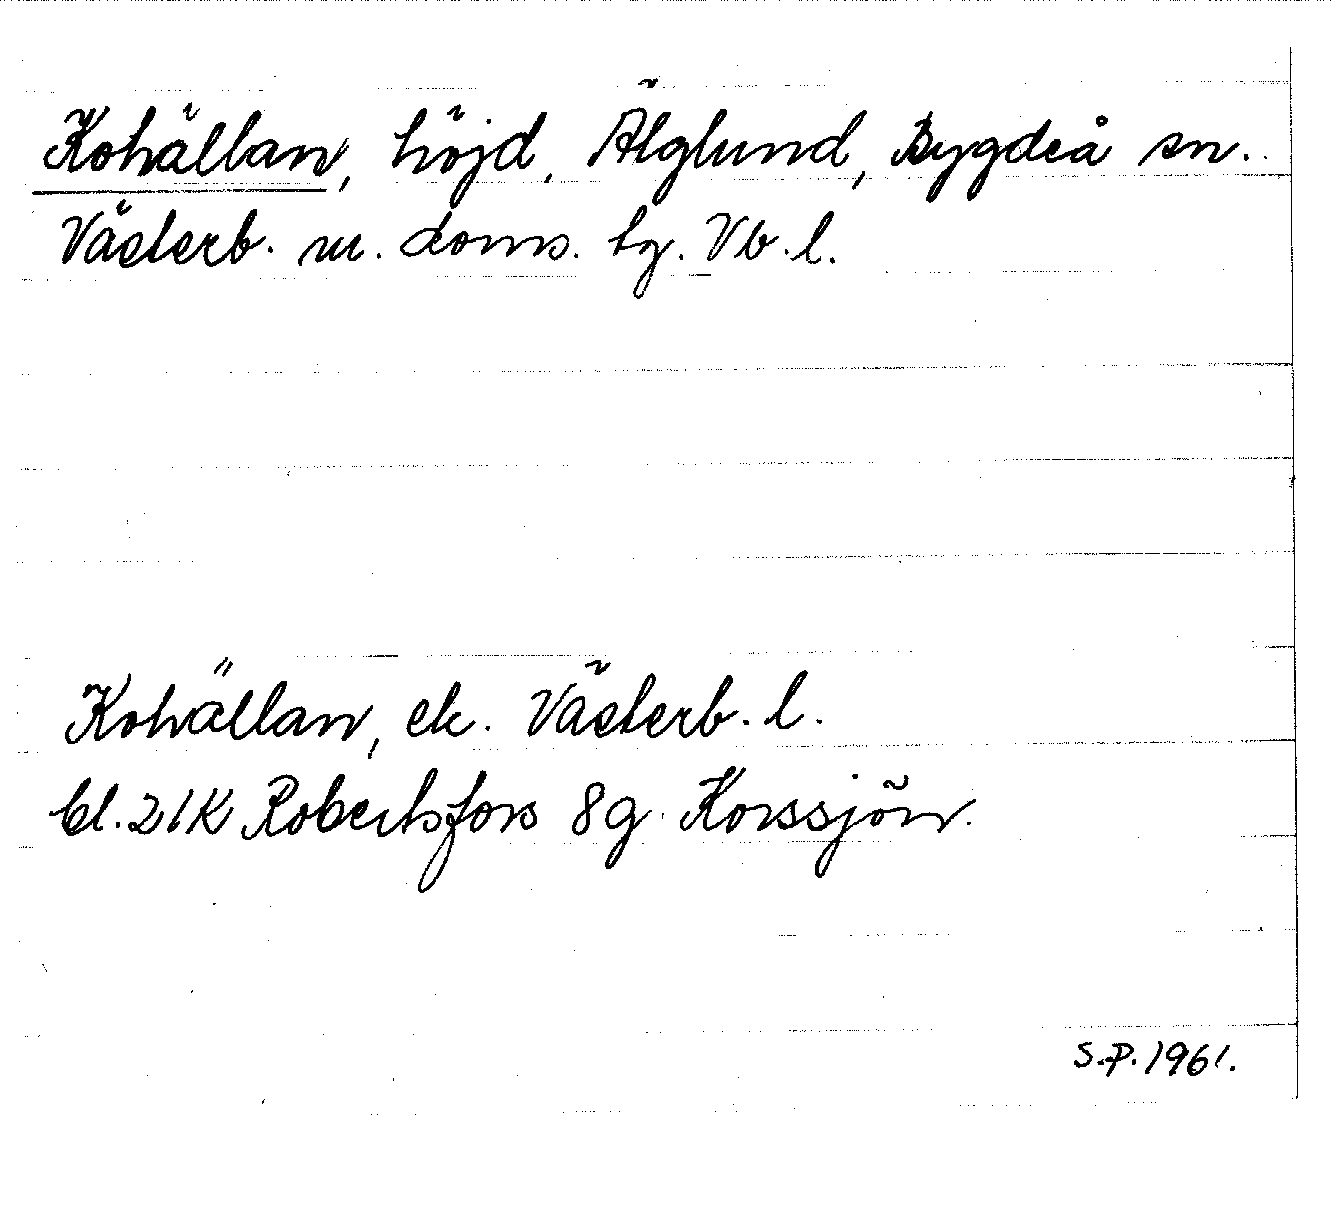 Kohällan, höjd, Älglund, Bygdeå sn.
Västerb. m. doms. tg. Vb. l.
Kohällan, ek. Västerb. l.
bl. 21K Robertsfors 8g. Korssjön.
S.P. 1961.